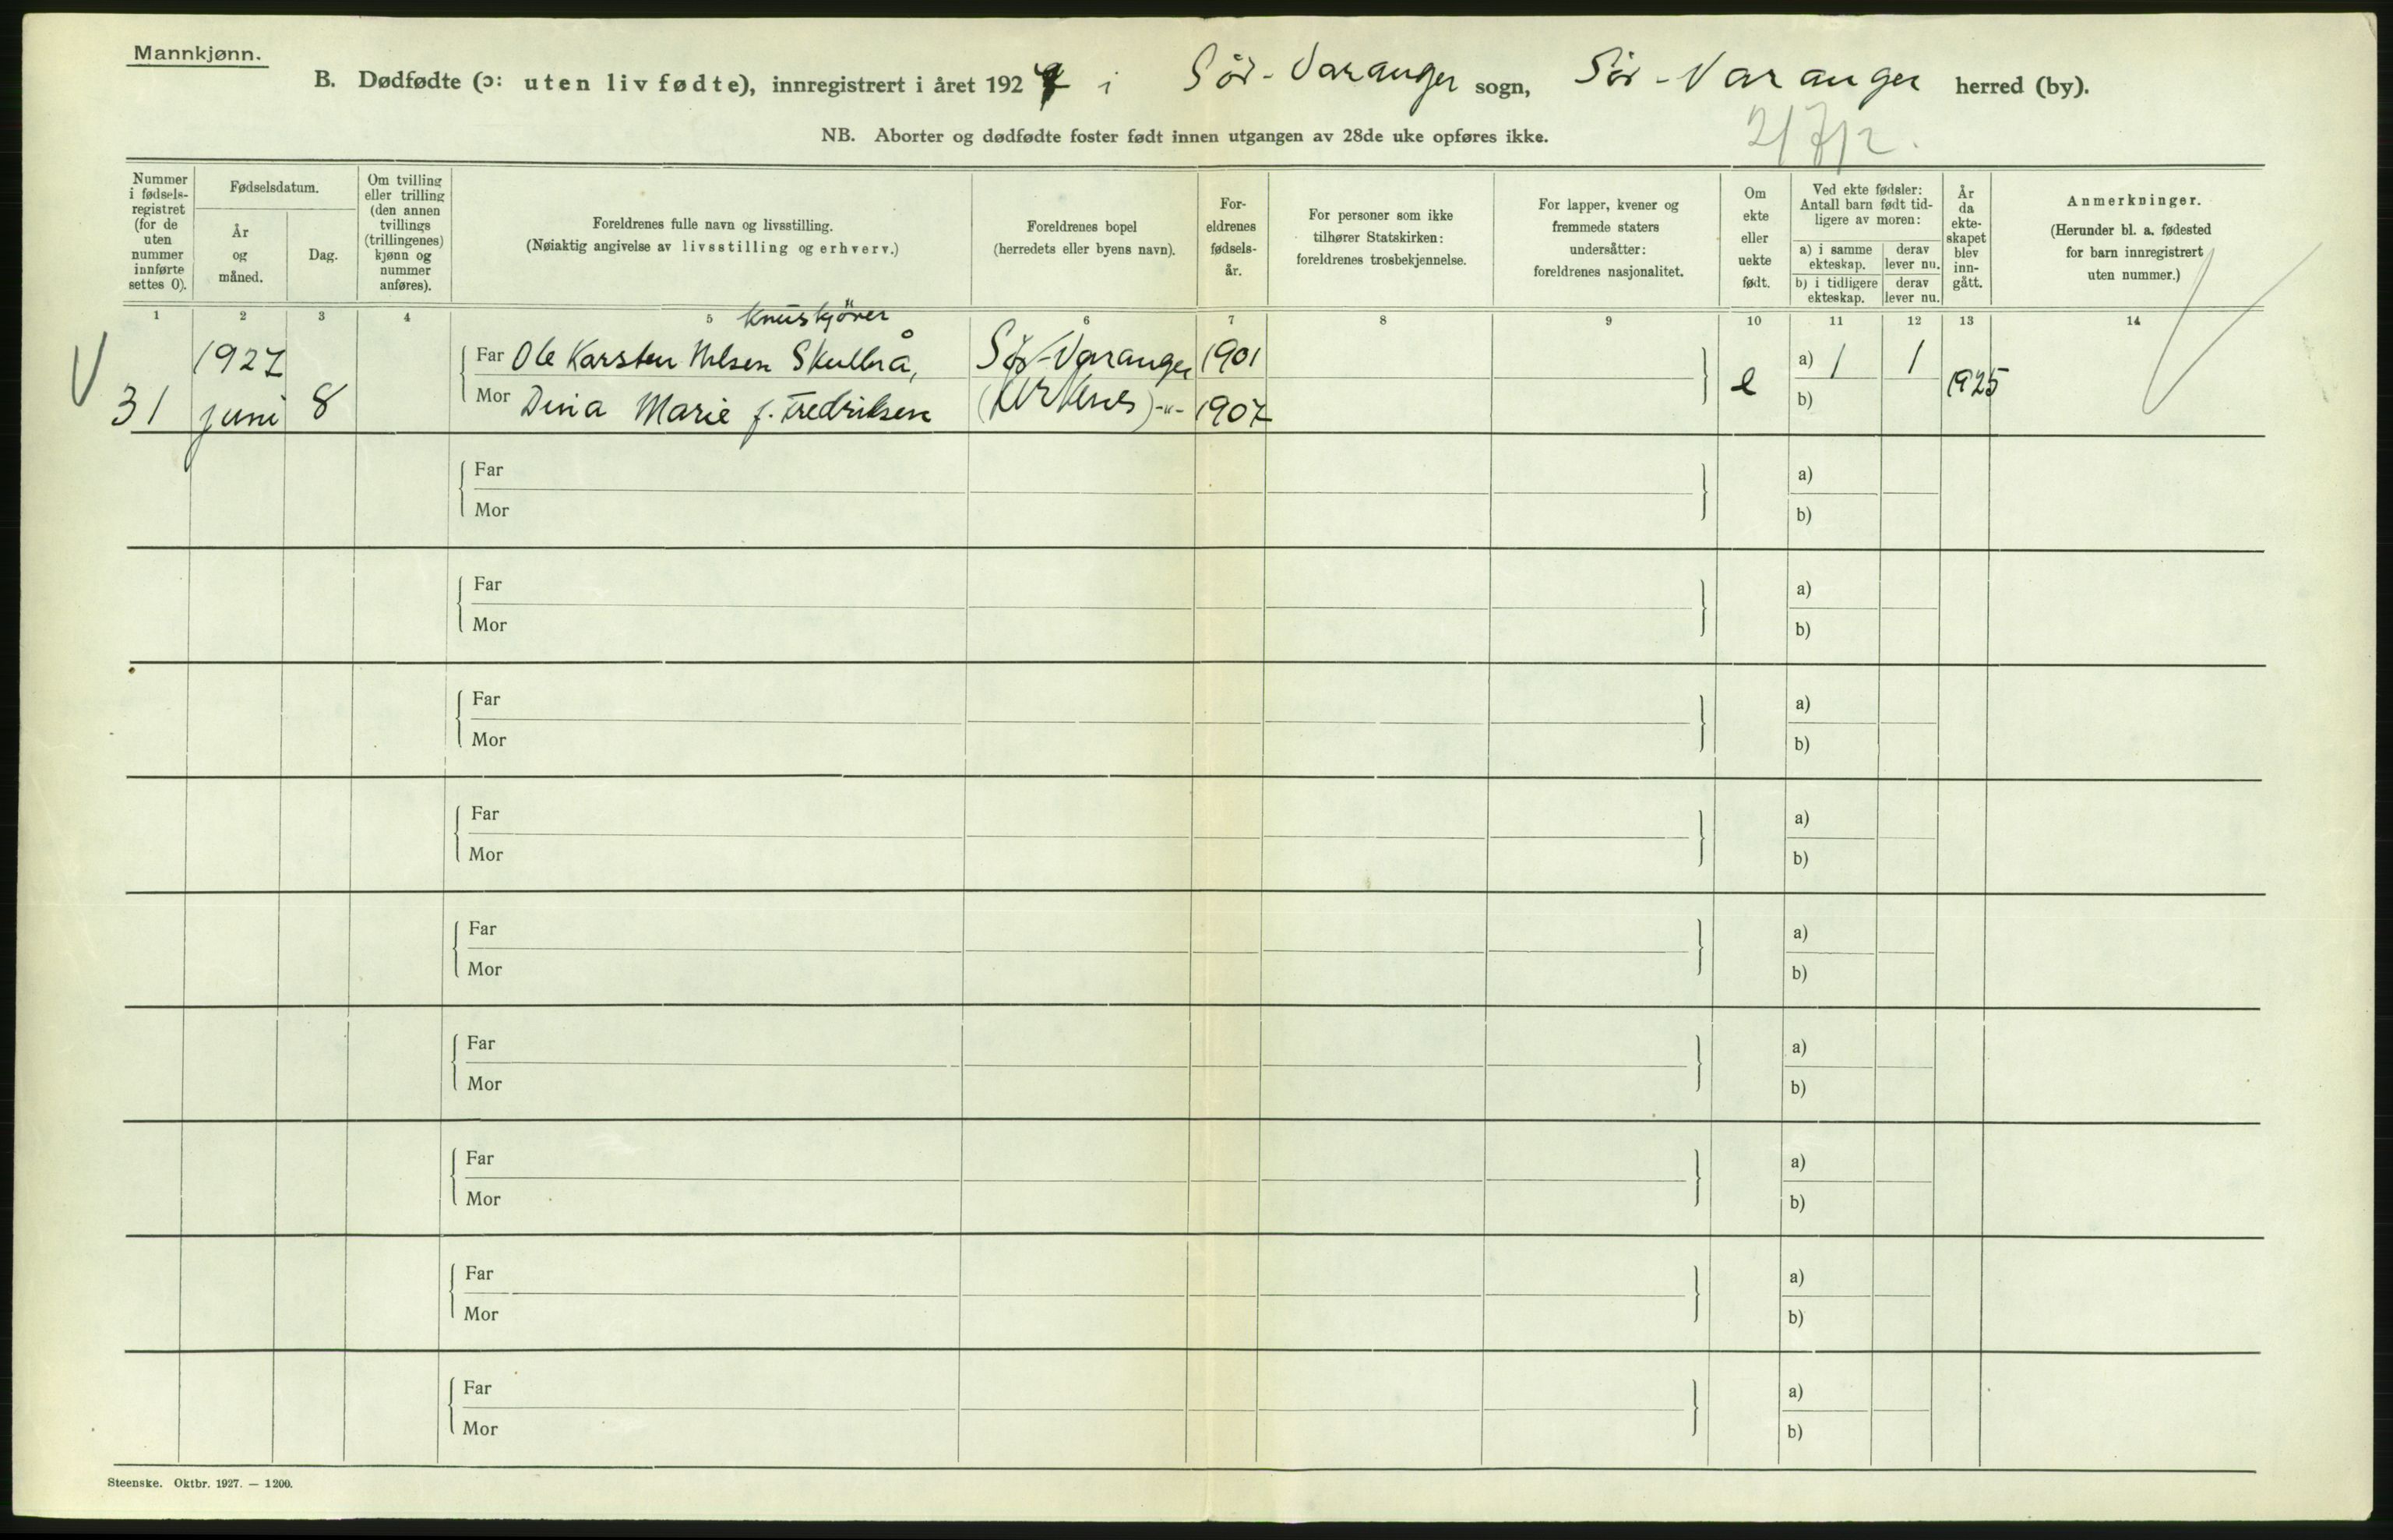 Mannkjønn.
B. Dødfødte (ɔ: uten liv fødte), innregistrert i året 1927 i Sør-Varanger sogn, Sør-Varanger herred (by).
NB. Aborter og dødfødte foster født innen utgangen av 28de uke opføres ikke.
Nummer i fødsels-registret (for de uten nummer innførte settes 0).
Fødselsdatum.
År og måned.
Dag.
Om tvilling eller trilling (den annen tvillings (trillingenes) kjønn og nummer anføres).
Foreldrenes fulle navn og livsstilling.
(Nøiaktig angivelse av livsstilling og erhverv.)
Foreldrenes bopel
(herredets eller byens navn).
For-eldrenes fødsels-år.
For personer som ikke tilhører Statskirken: foreldrenes trosbekjennelse.
For lapper, kvener og fremmede staters undersåtter: foreldrenes nasjonalitet.
Om ekte eller uekte født.
Ved ekte fødsler: Antall barn født tid-ligere av moren:
a) i samme ekteskap.
derav lever nu.
b) i tidligere ekteskap.
derav lever nu.
År da ekte-skapet blev inn-gått.
Anmerkninger.
(Herunder bl. a. fødested for barn innregistrert uten nummer.)
1 2 3 4 5 6 7 8 9 10 11 12 13 14
1927
Far Ole Karsten Nilsen Skulbrå, Sør-Varanger 1901 a) 1 1
31 juni 8 Mor Dina Marie f. Fredriksen (Kirkenes) -"- 1907 e b) 1925
Far a)
Mor b)
Far a)
Mor b)
Far a)
Mor b)
Far a)
Mor b)
Far a)
Mor b)
Far a)
Mor b)
Far a)
Mor b)
Far a)
Mor b)
Far a)
Mor b)
Steenske. Oktbr. 1927. — 1200.